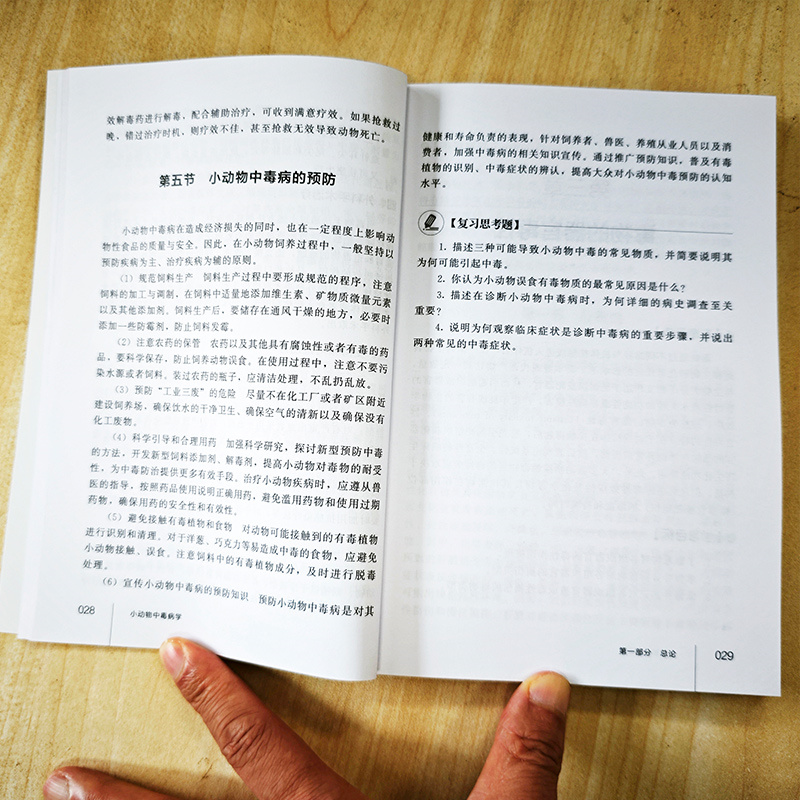 效解毒药进行解毒，配合辅助治疗，可收到满意疗效。如果抢救过
晚，错过治疗时机，则疗效不佳，甚至抢救无效导致动物死亡。
第五节 小动物中毒病的预防
小动物中毒病在造成经济损失的同时，也在一定程度上影响动
物性食品的质量与安全。因此，在小动物饲养过程中，一般坚持以
预防疾病为主、治疗疾病为辅的原则。
（1）规范饲料生产 饲料生产过程中要形成规范的程序，注意
饲料的加工与调制，在饲料中适量地添加维生素、矿物质微量元素
以及其他添加剂。饲料生产后，要储存在通风干燥的地方，必要时
添加一些防霉剂，防止饲料发霉。
（2）注意农药的保管 农药以及其他具有腐蚀性或者有毒的药
品，要科学保存，防止饲养动物误食。在使用过程中，注意不要污
染水源或者饲料。装过农药的瓶子，应清洁处理，不乱扔乱放。
（3）预防“工业三废”的危险 尽量不在化工厂或者矿区附近
建设饲养场，确保饮水的干净卫生、确保空气的清新以及确保没有
化工废物。
（4）科学引导和合理用药 加强科学研究，探讨新型预防中毒
的方法，开发新型饲料添加剂、解毒剂，提高小动物对毒物的耐受
性，为中毒防治提供更多有效手段。治疗小动物疾病时，应遵从兽
医的指导，按照药品使用说明正确用药，避免滥用药物和使用过期
药物，确保用药的安全性和有效性。
（5）避免接触有毒植物和食物 对动物可能接触到的有毒植物
进行识别和清理。对于洋葱、巧克力等易造成中毒的食物，应避免
小动物接触、误食。注意饲料中的有毒植物成分，及时进行脱毒
处理。
（6）宣传小动物中毒病的预防知识 预防小动物中毒病是对其
028 小动物中毒病学
健康和寿命负责的表现，针对饲养者、兽医、养殖从业人员以及消
费者，加强中毒病的相关知识宣传。通过推广预防知识，普及有毒
植物的识别、中毒症状的辨认，提高大众对小动物中毒预防的认知
水平。
【复习思考题】
1. 描述三种可能导致小动物中毒的常见物质，并简要说明其
为何可能引起中毒。
2. 你认为小动物误食有毒物质的最常见原因是什么？
3. 描述在诊断小动物中毒病时，为何详细的病史调查至关
重要？
4. 说明为何观察临床症状是诊断中毒病的重要步骤，并说出
两种常见的中毒症状。
第一部分 总论 029